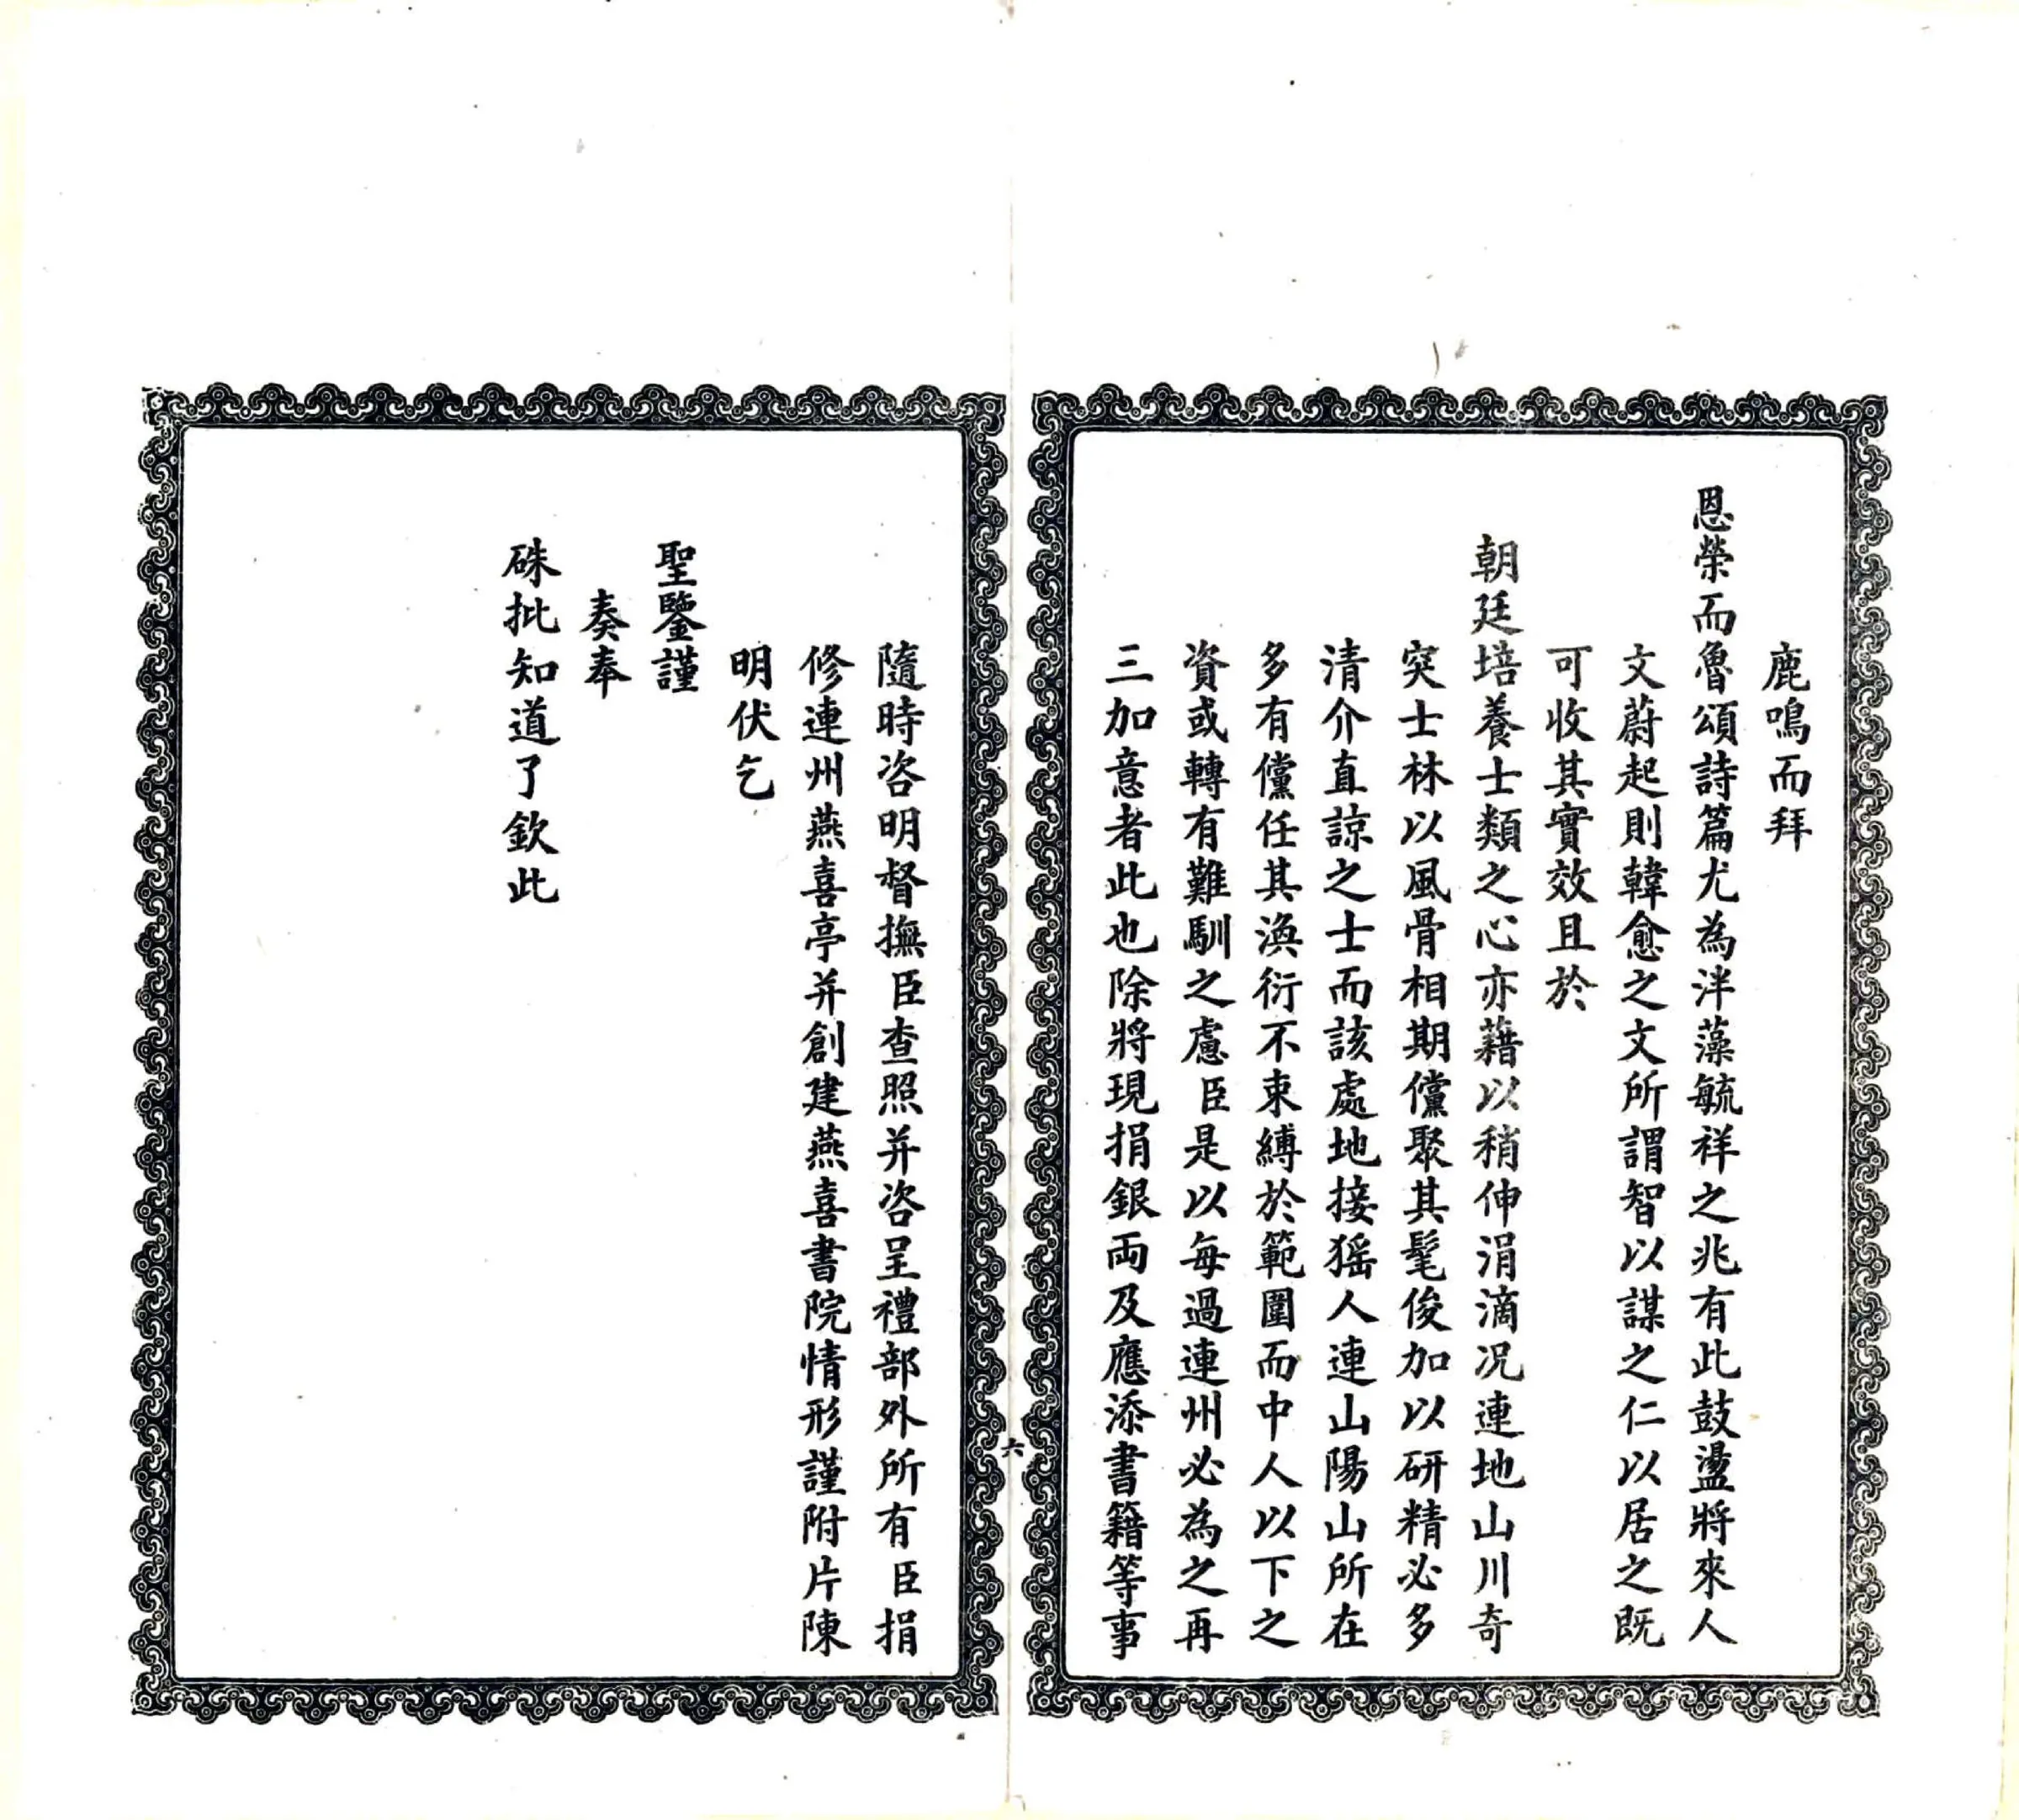 鹿鳴而拜
恩榮而魯頌詩篇尤為泮藻毓祥之兆有此鼓盪將來人
文蔚起則韓愈之文所謂智以謀之仁以居之既
可收其實效且於
朝廷培養士類之心亦藉以稍伸涓滴况連地山川奇
突士林以風骨相期儻聚其髦俊加以研精必多
清介直諒之士而該處地接猺人連山陽山所在
多有儻任其渙衍不束縛於範圍而中人以下之
資或轉有難馴之慮臣是以每過連州必為之再
三加意者此也除將現捐銀両及應添書籍等事
六
隨時咨明督撫臣查照并咨呈禮部外所有臣捐
修連州燕喜亭并創建燕喜書院情形謹附片陳
明伏乞
聖鑒謹
奏奉
硃批知道了欽此